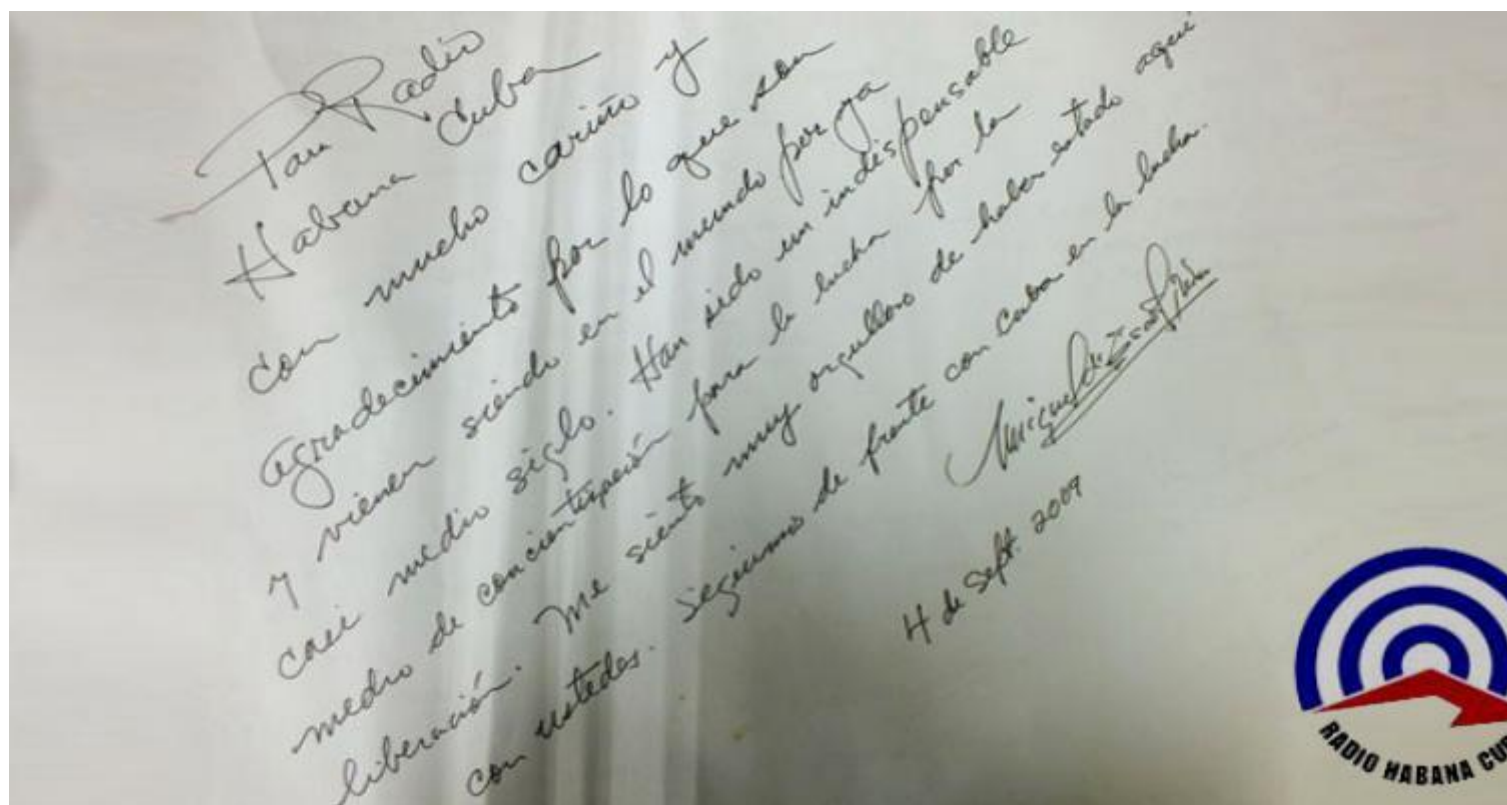 Para Radio
Habana Cuba
Con mucho cariño y
agradecimiento por lo que son
y vienen siendo en el mundo por ya
casi medio siglo. Han sido un indispensable
medio de concientización para la lucha por la
liberación. Me siento muy orgulloso de haber estado aquí
con ustedes. Seguimos de frente con Cuba en la lucha.
Miguel d'Escoto
4 de Sept. 2009
RADIO HABANA CU